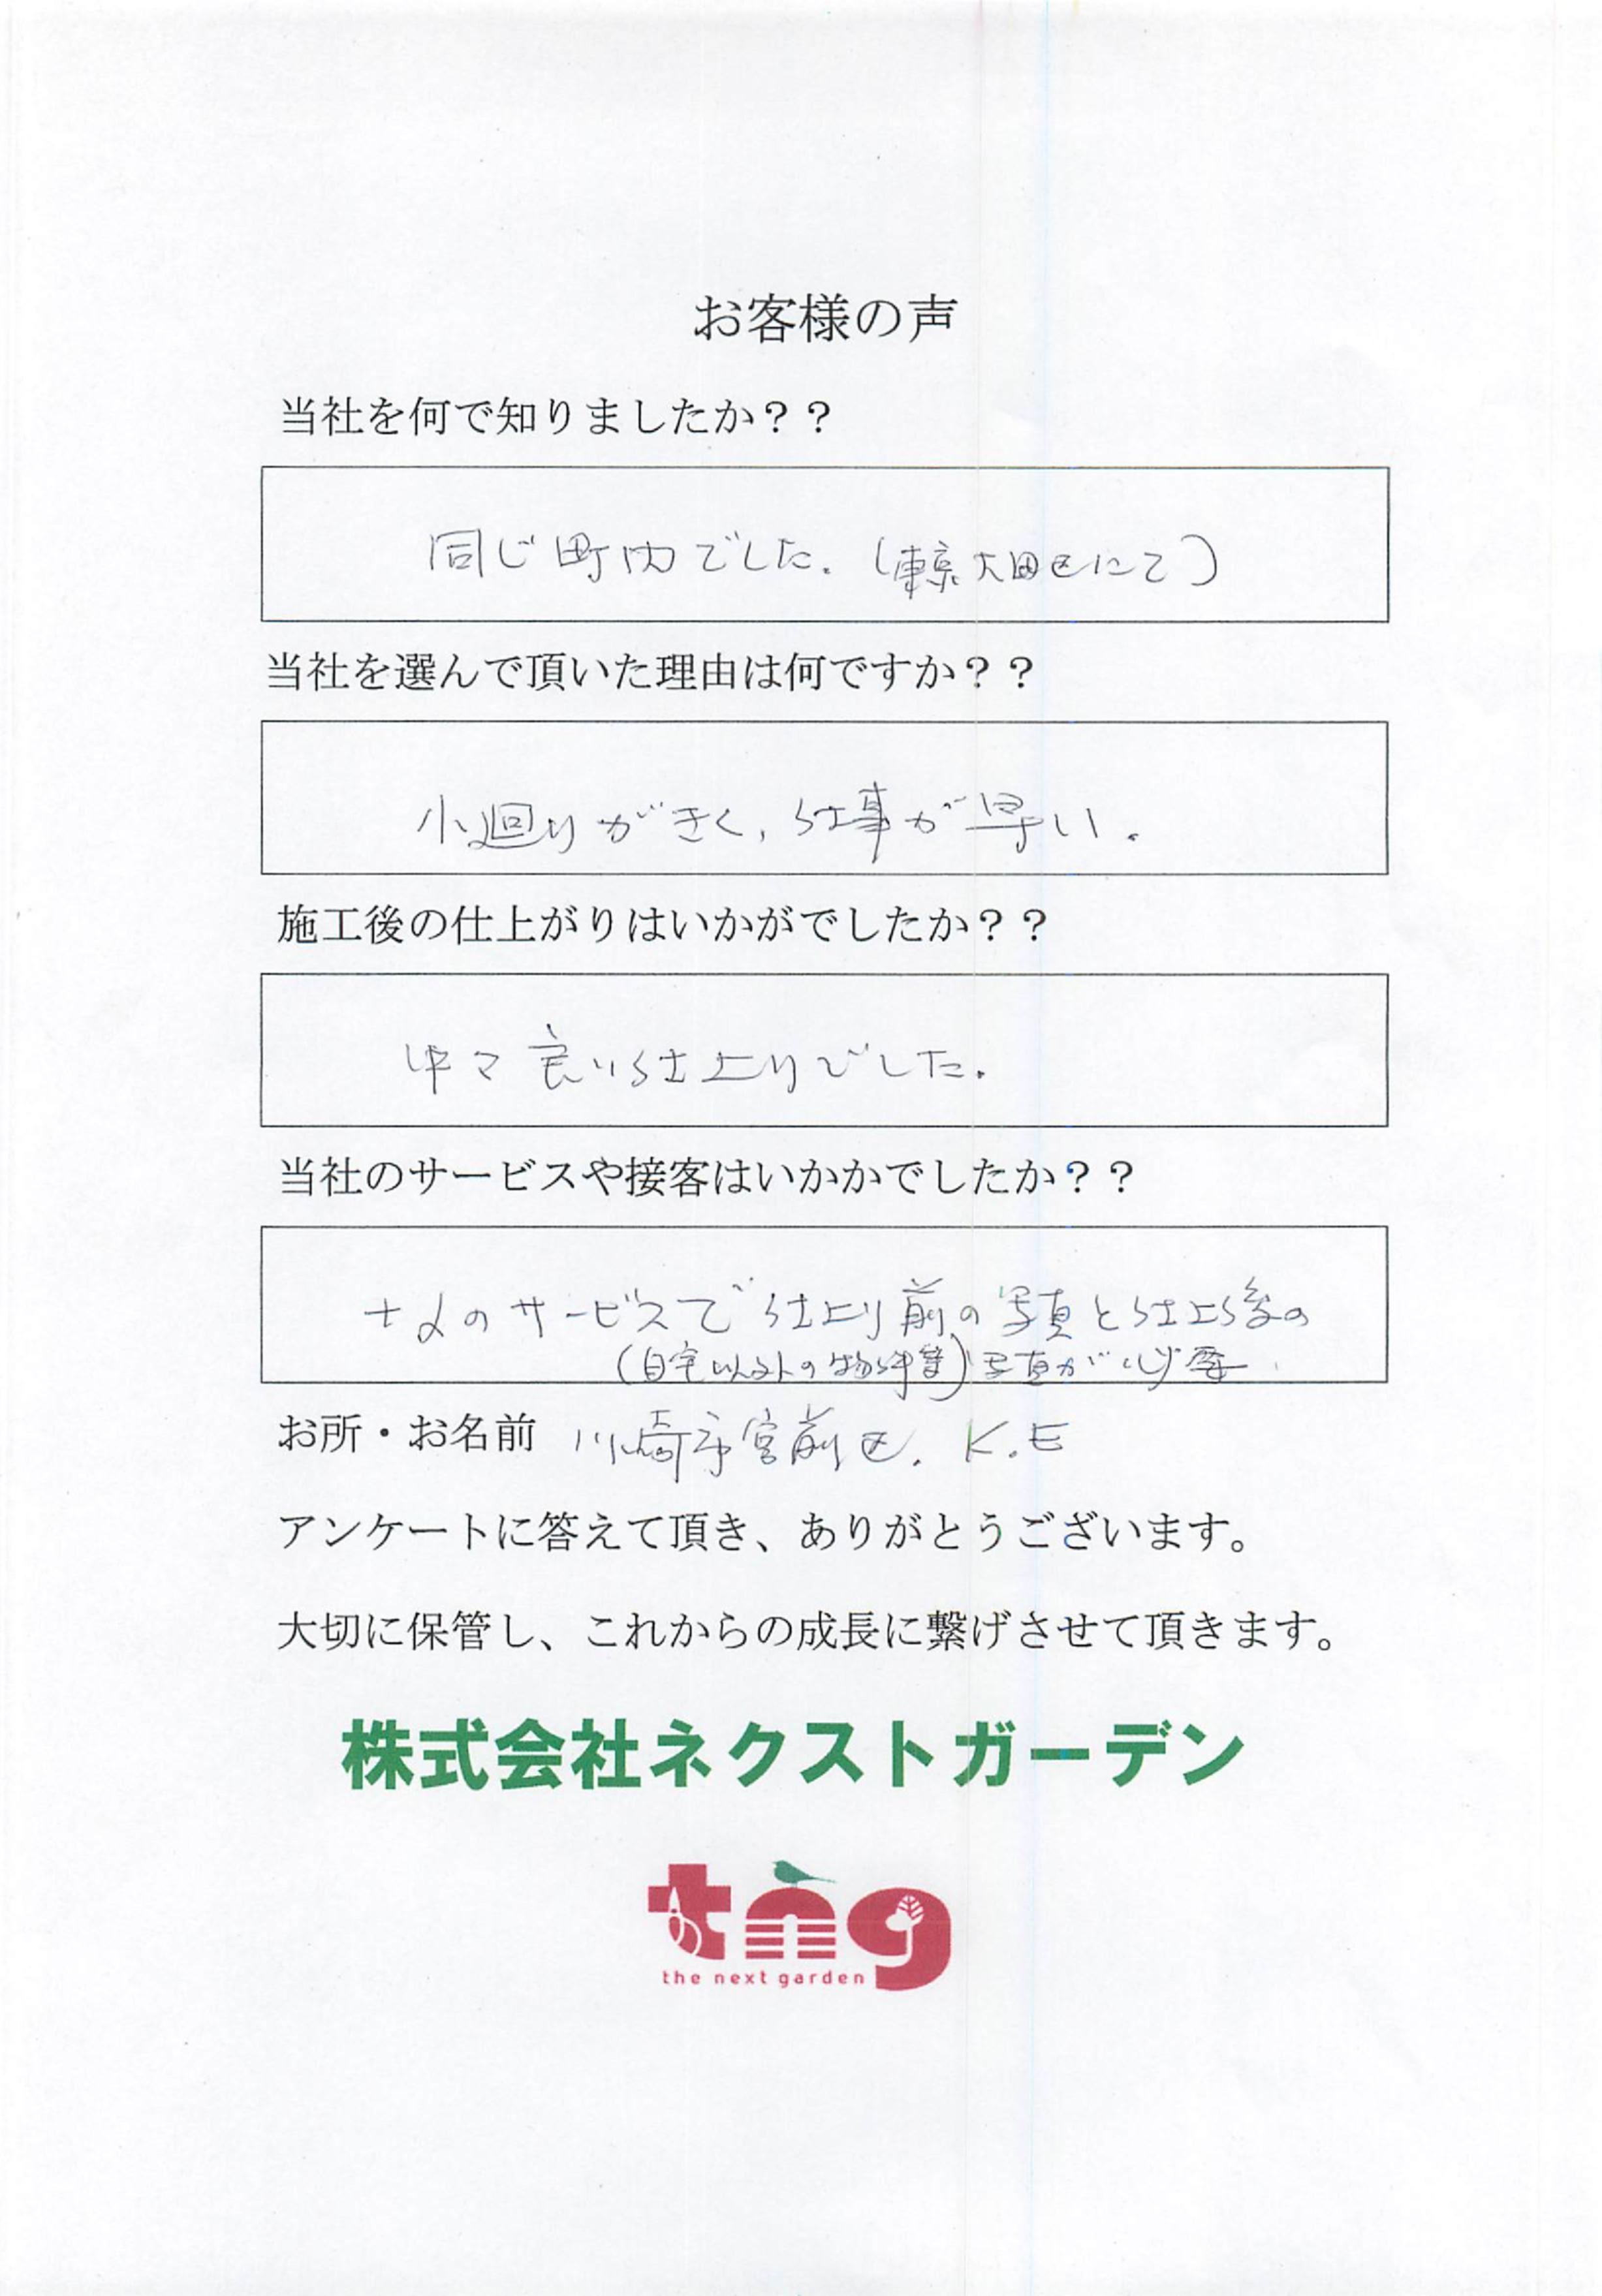 お客様の声
当社を何で知りましたか？？
同じ町内でした．(東京大田区にて)
当社を選んで頂いた理由は何ですか？？
小廻りがきく，仕事が早い．
施工後の仕上がりはいかがでしたか？？
中々良い仕上りでした．
当社のサービスや接客はいかかでしたか？？
のサービスで仕上り前の写真と仕上後の
(自宅以外の物件等)写真が必要．
お所・お名前 川崎市宮前区．K.E
アンケートに答えて頂き、ありがとうございます。
大切に保管し、これからの成長に繋げさせて頂きます。
株式会社ネクストガーデン
tng
the next garden